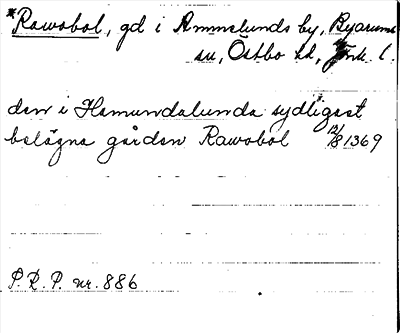 *Rawobol, gd i Ammelunds by, Byarums
sn, Östbo hd, Jönk. l.
den i Hamundalunda sydligast
belägna gården Rawobol 12/8 1369
P. R. P. nr. 886